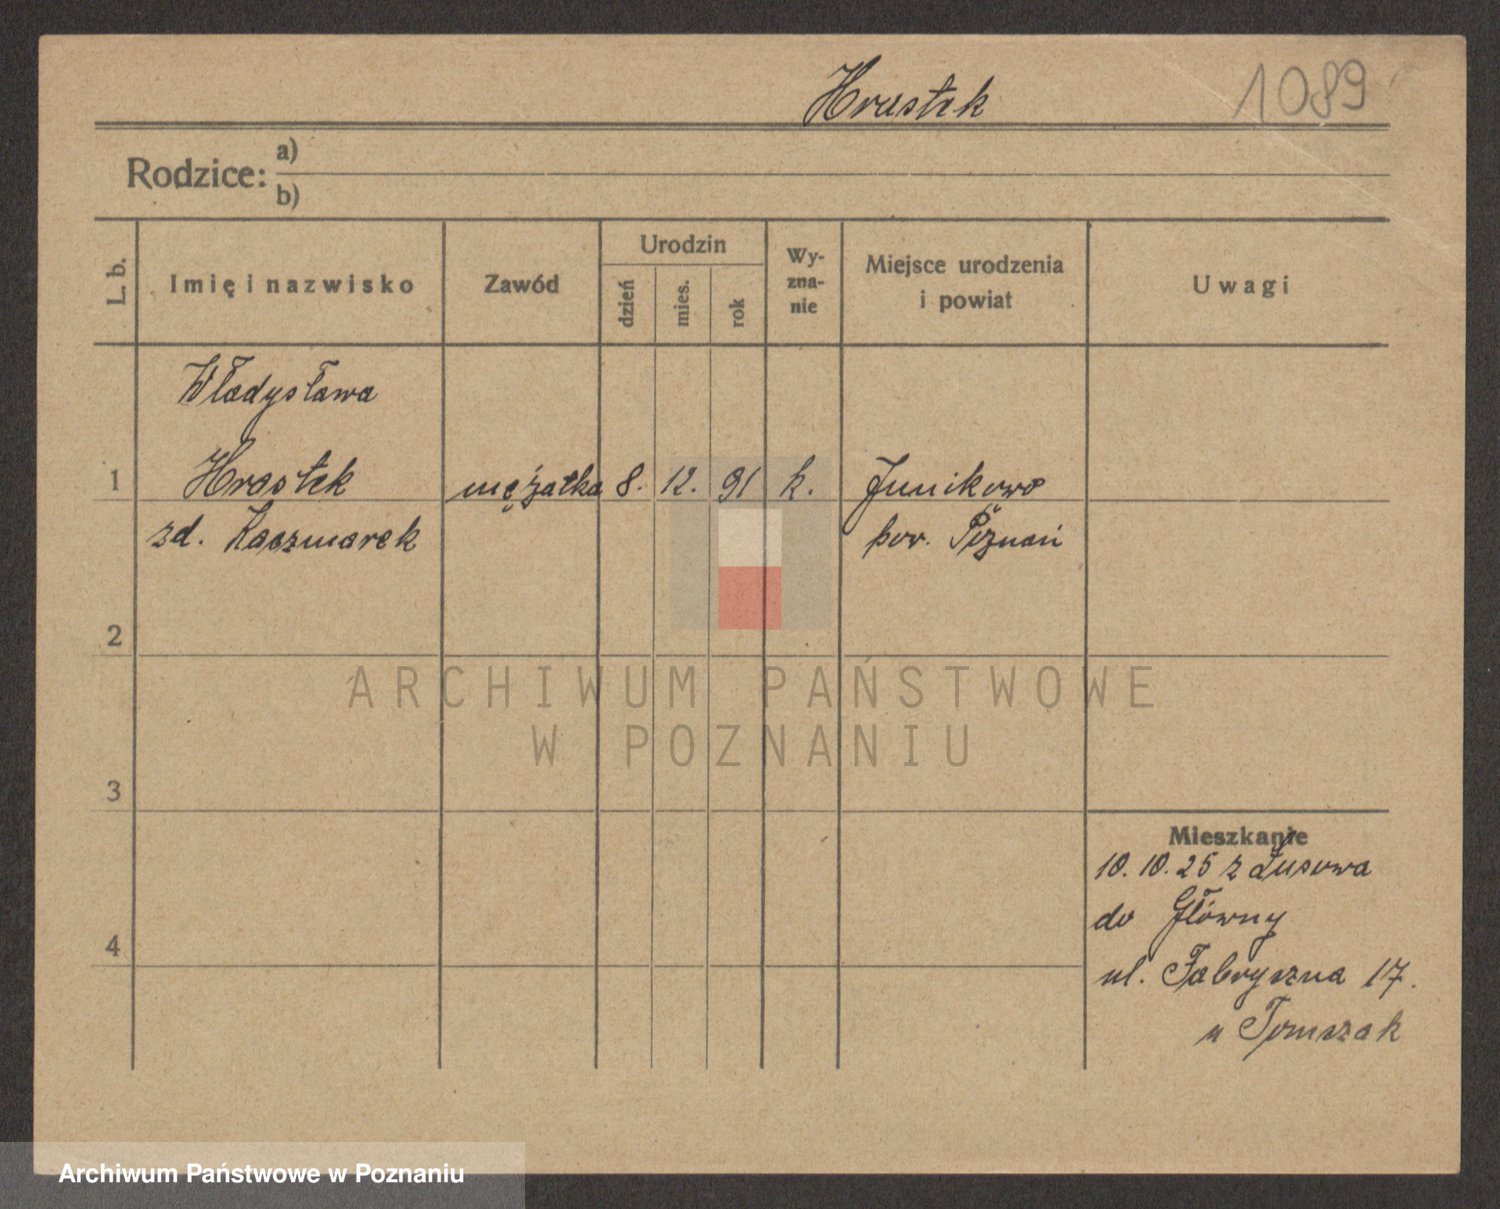 Hrastek
1089
Rodzice: a)
b)
L. b.
Imię i nazwisko
Zawód
Urodzin
dzień
mies.
rok
Wy-
zna-
nie
Miejsce urodzenia
i powiat
Uwagi
Władysława
1 Hrastek mężatka 8. 12. 91 k. Junikowo
zd. Kaczmarek pow. Poznań
2
ARCHIWUM PAŃSTWOWE
W POZNANIU
3
Mieszkanie
10. 10. 25 z Lusowa
do Główny
4
ul. Fabryczna 17.
u Tomszak
Archiwum Państwowe w Poznaniu